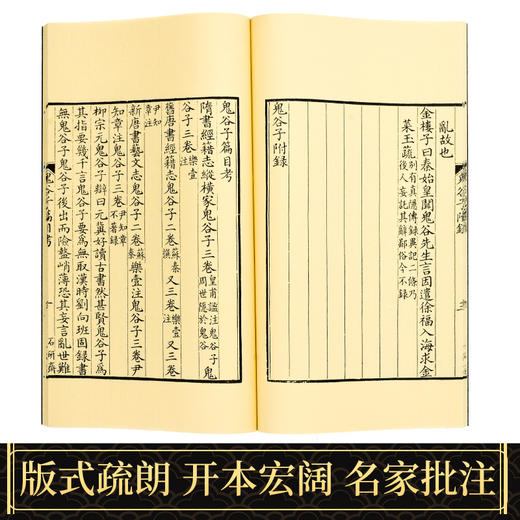 亂故也
金樓子曰秦始皇聞鬼谷先生言因遣徐福入海求金
菜玉蔬別有真隱傳錄異記二條乃
後人妄託其辭鄙俗今不錄
鬼谷子附錄
鬼谷子篇目考
隋書經籍志縱橫家鬼谷子三卷皇甫謐注鬼谷子
周世隱於鬼谷鬼
谷子三卷樂壹注
舊唐書經籍志鬼谷子二卷蘇秦撰又三卷樂壹注又三卷
尹知章注
新唐書藝文志鬼谷子二卷蘇秦樂壹注鬼谷子三卷尹
知章注鬼谷子三卷尹知章不著錄
柳宗元鬼谷子辯曰元冀好讀古書然甚賢鬼谷子爲
其指要幾千言鬼谷子要爲無取漢時劉向班固錄書
無鬼谷子鬼谷子後出而險盭峭薄恐其妄言亂世難
鬼谷子篇目考
石研齋
版式疏朗 开本宏阔 名家批注